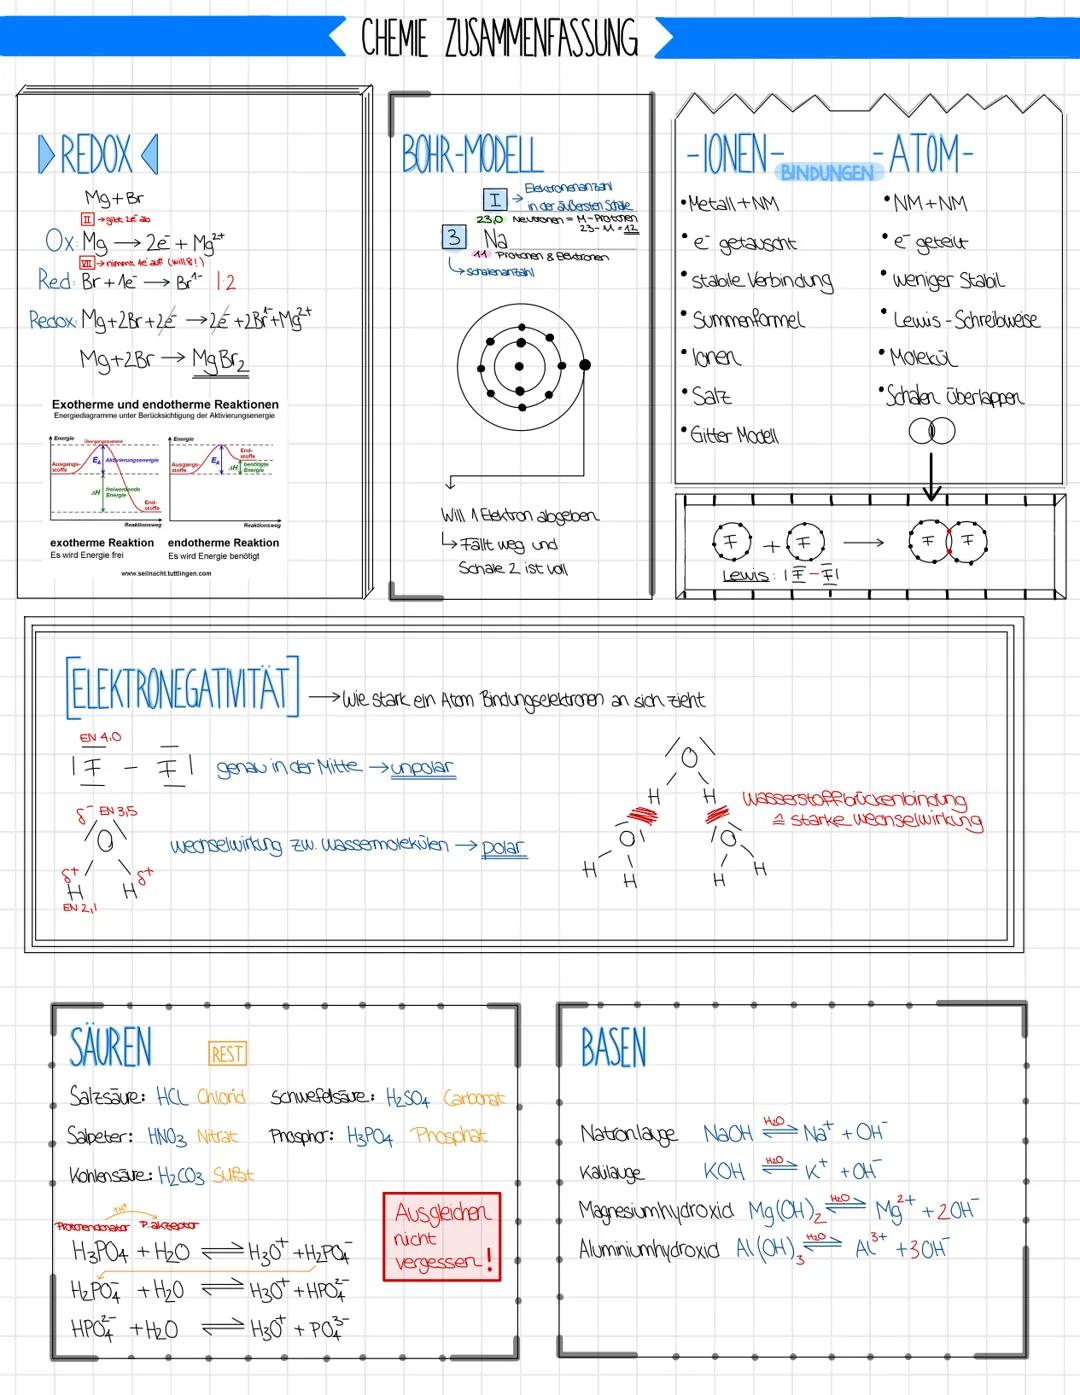 CHEMIE ZUSAMMENFASSUNG
REDOX
Mg + Br
II → gibt 2e⁻ ab
Ox: Mg → 2e⁻ + Mg²⁺
VII → nimmt 1e⁻ auf (will 8!)
Red: Br + 1e⁻ → Br¹⁻ |·2
Redox: Mg + 2Br + 2e⁻ → 2e⁻ + 2Br¹⁻ + Mg²⁺
Mg + 2Br → MgBr₂
Exotherme und endotherme Reaktionen
Energiediagramme unter Berücksichtigung der Aktivierungsenergie
Energie
Übergangszustand
Ausgangs-
stoffe
EA Aktivierungsenergie
ΔH freiwerdende
Energie
End-
stoffe
Reaktionsweg
Energie
Ausgangs-
stoffe
EA
End-
stoffe
ΔH benötigte
Energie
Reaktionsweg
exotherme Reaktion
Es wird Energie frei
endotherme Reaktion
Es wird Energie benötigt
www.seilnacht.tuttlingen.com
BOHR-MODELL
I → Elektronenanzahl
in der äußersten Schale
23,0 Neutronen = M - Protonen
23 - 11 = 12
3 Na
11 Protonen & Elektronen
↳ Schalenanzahl
Will 1 Elektron abgeben
↳ Fällt weg und
Schale 2 ist voll
-IONEN- BINDUNGEN -ATOM-
• Metall + NM
• e⁻ getauscht
• stabile Verbindung
• Summenformel
• Ionen
• Salz
• Gitter Modell
• NM + NM
• e⁻ geteilt
• weniger Stabil
• Lewis-Schreibweise
• Molekül
• Schalen überlappen
F + F → F F
Lewis: |F-F|
[ELEKTRONEGATIVITÄT] → Wie stark ein Atom Bindungselektronen an sich zieht
EN 4,0
|F - F| genau in der Mitte → unpolar
δ⁻ EN 3,5
O
δ⁺ δ⁺
H H
EN 2,1
Wechselwirkung zw. Wassermolekülen → polar
O
H H
O O
H H H H
Wasserstoffbrückenbindung
≙ starke Wechselwirkung
SÄUREN
REST
Salzsäure: HCL Chlorid Schwefelsäure: H₂SO₄ Carbonat
Salpeter: HNO₃ Nitrat Phosphor: H₃PO₄ Phosphat
Kohlensäure: H₂CO₃ Sulfat
1H⁺
Protonendonator P.akzeptor
H₃PO₄ + H₂O ⇌ H₃O⁺ + H₂PO₄⁻
H₂PO₄⁻ + H₂O ⇌ H₃O⁺ + HPO₄²⁻
HPO₄²⁻ + H₂O ⇌ H₃O⁺ + PO₄³⁻
Ausgleichen
nicht
vergessen!
BASEN
Natronlauge NaOH ⇌ H₂O Na⁺ + OH⁻
Kalilauge KOH ⇌ H₂O K⁺ + OH⁻
Magnesiumhydroxid Mg(OH)₂ ⇌ H₂O Mg²⁺ + 2OH⁻
Aluminiumhydroxid Al(OH)₃ ⇌ H₂O Al³⁺ + 3OH⁻